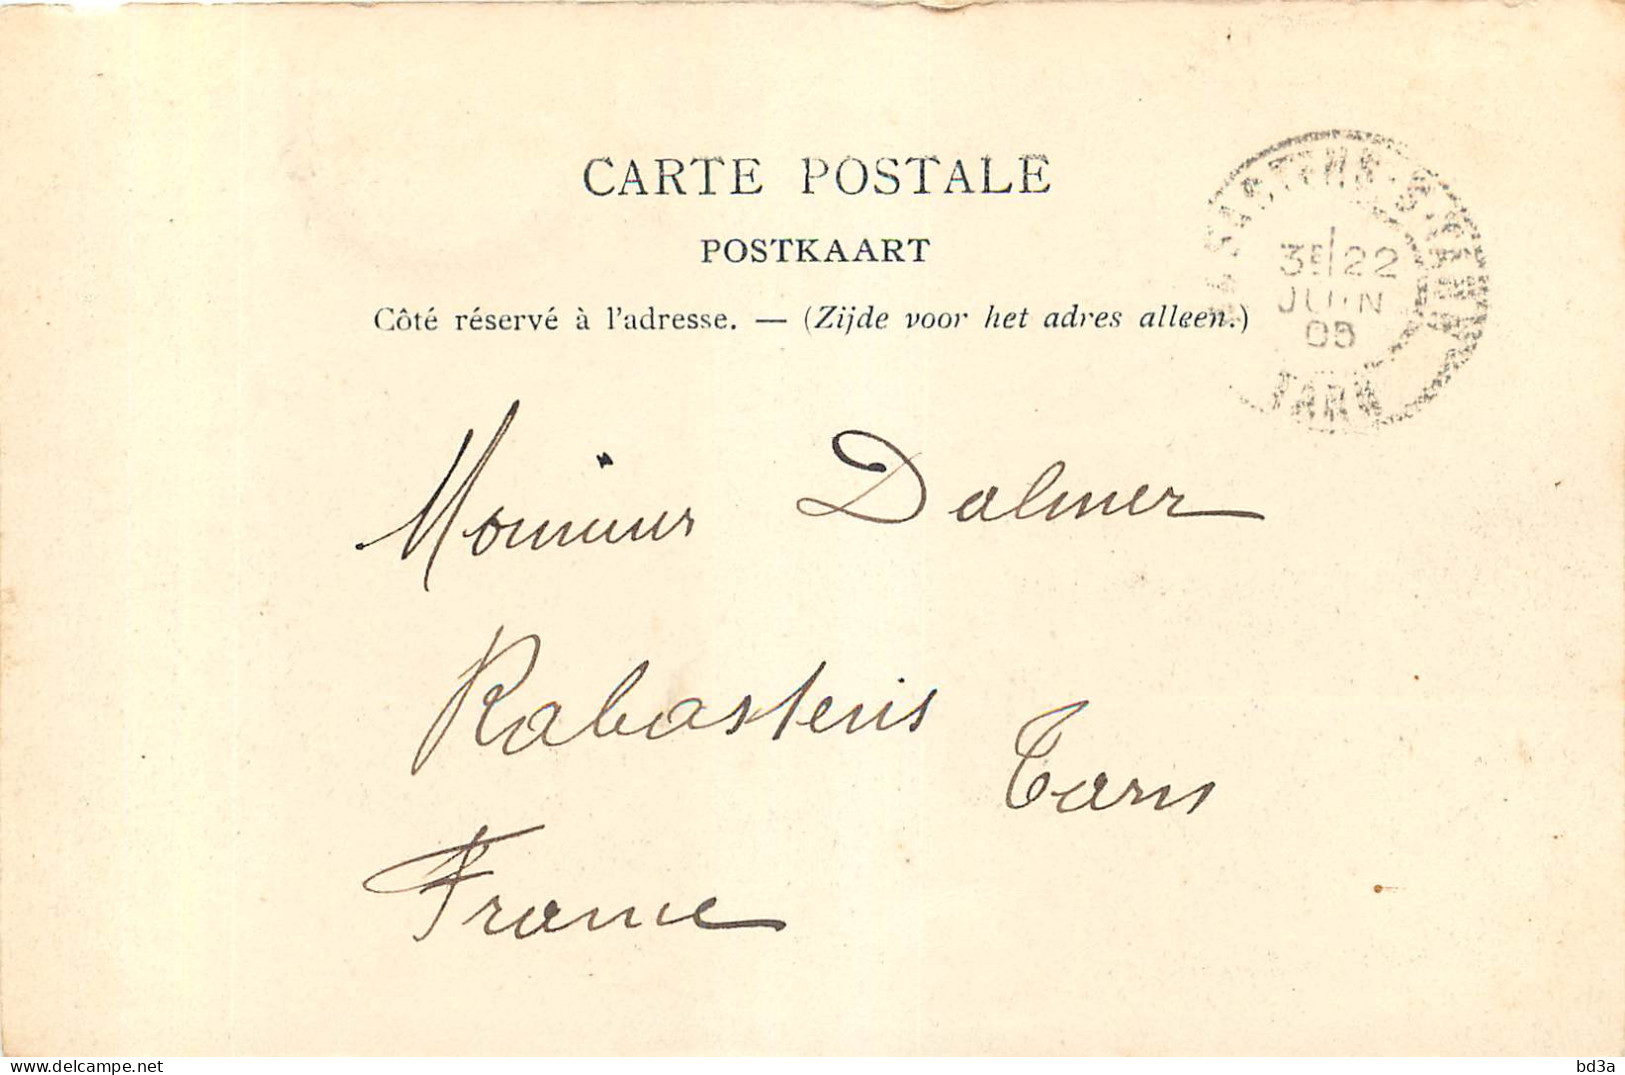 CARTE POSTALE
POSTKAART
Côté réservé à l'adresse. — (Zijde voor het adres alleen.)
3E/22
JUIN
05
TARN
Monsieur Dalmer
Rabastens
Tarn
France
delcampe.net
bd3a